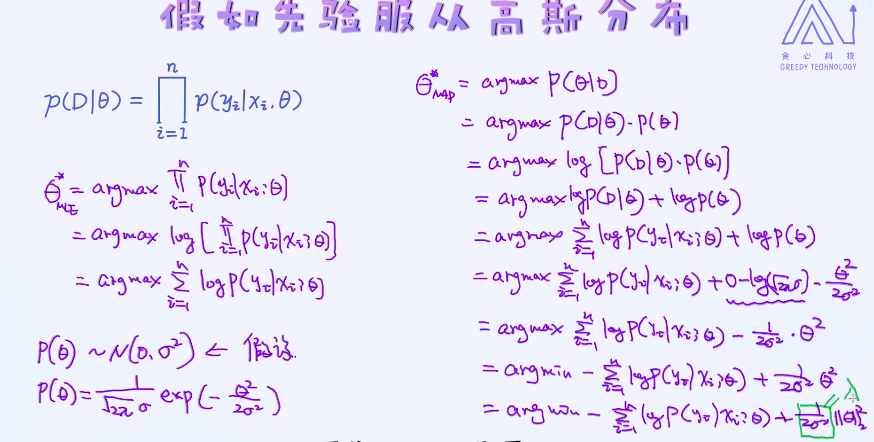 假如先验服从高斯分布
贪心科技
GREEDY TECHNOLOGY
p(D|θ) = ∏_{i=1}^{n} p(y_i|x_i.θ)
θ*_{MLE} = argmax ∏_{i=1}^{n} P(y_i|x_i;θ)
= argmax log [∏_{i=1}^{n} P(y_i|x_i;θ)]
= argmax ∑_{i=1}^{n} log P(y_i|x_i;θ)
P(θ) ~ N(0, σ²) ← 假设.
P(θ) = 1/(√2π σ) exp(-θ²/2σ²)
θ*_{MAP} = argmax P(θ|D)
= argmax P(D|θ)·P(θ)
= argmax log [P(D|θ)·P(θ)]
= argmax log P(D|θ) + log P(θ)
= argmax ∑_{i=1}^{n} log P(y_i|x_i;θ) + log P(θ)
= argmax ∑_{i=1}^{n} log P(y_i|x_i;θ) + 0 - log(√2πσ) - θ²/2σ²
= argmax ∑_{i=1}^{n} log P(y_i|x_i;θ) - 1/2σ² · θ²
= argmin - ∑_{i=1}^{n} log P(y_i|x_i;θ) + 1/2σ² θ²
= argmin - ∑_{i=1}^{n} log P(y_i|x_i;θ) + 1/2σ² ||θ||₂²
λ